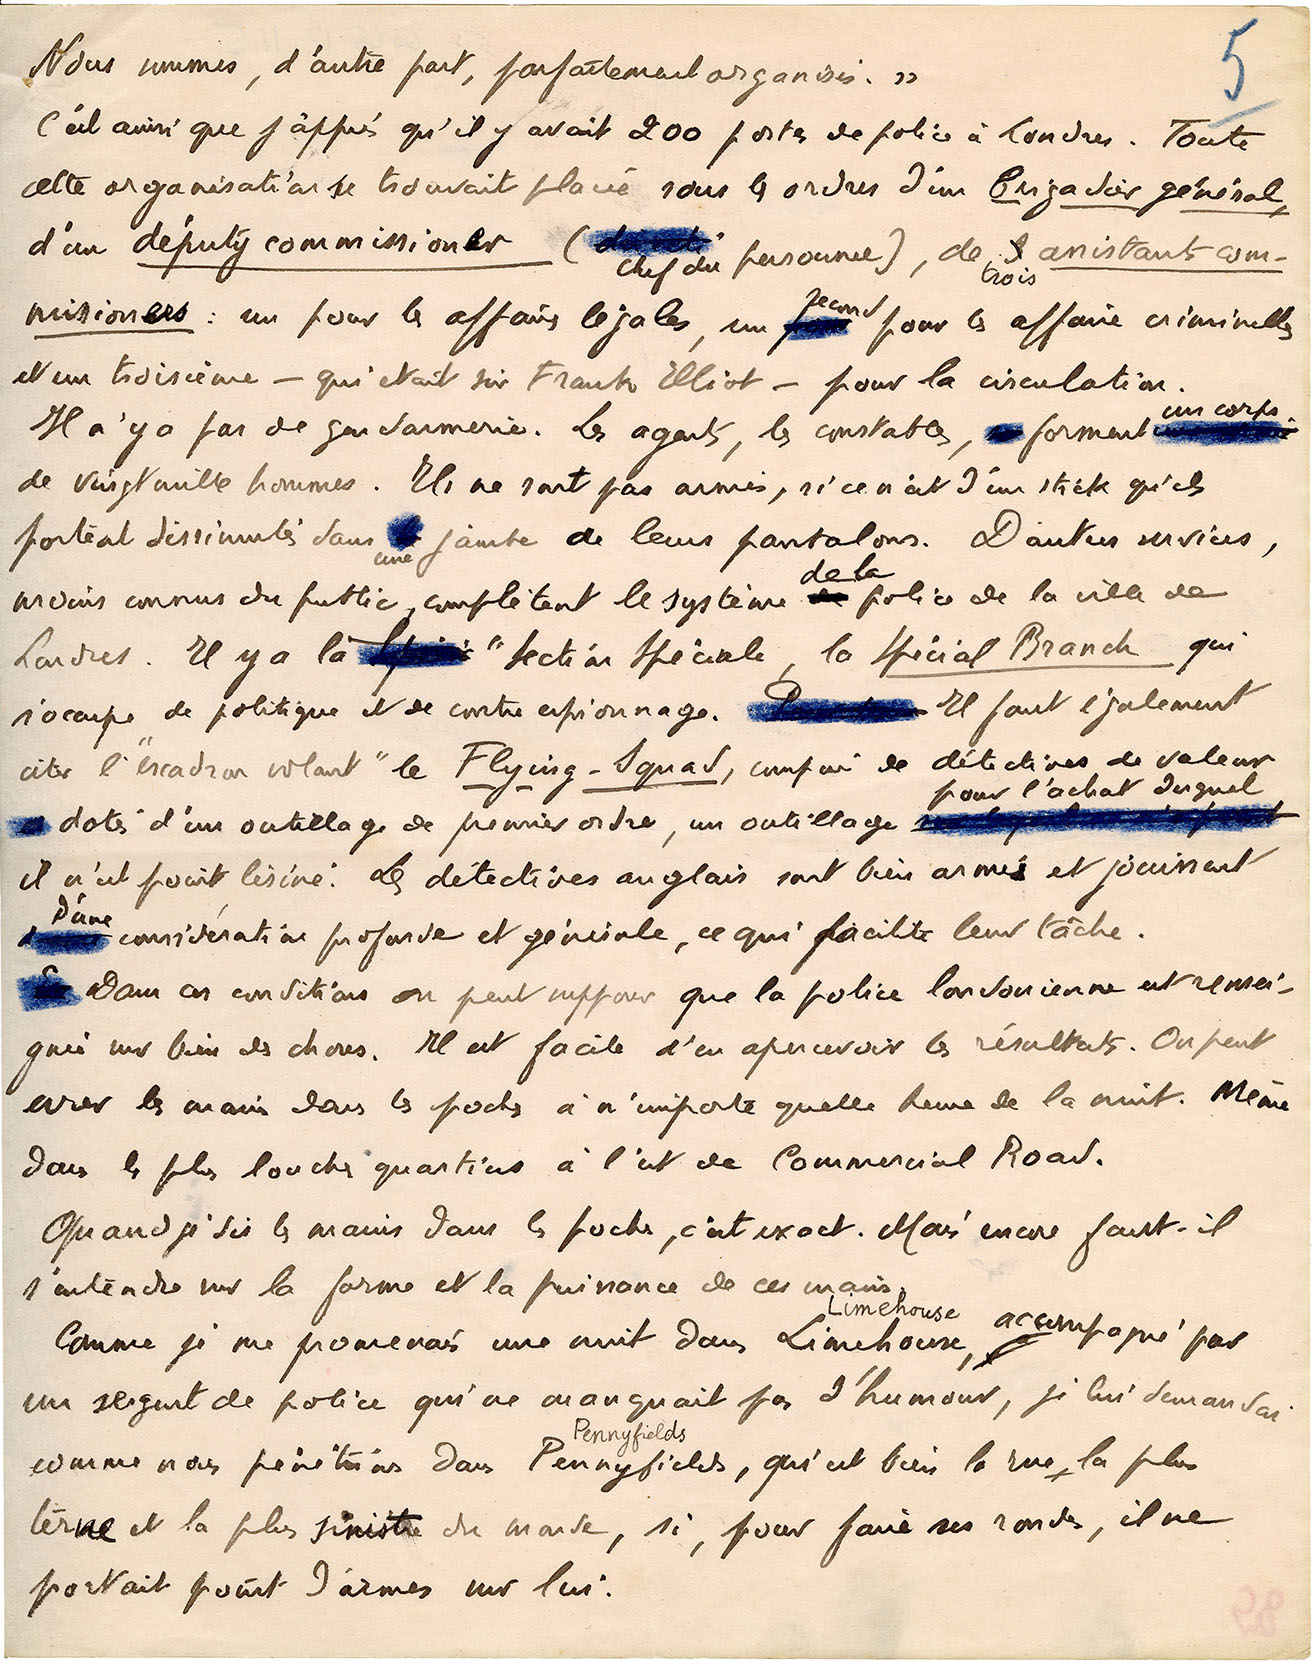 5
Nous sommes, d'autre part, parfaitement organisés. »
C'est ainsi que j'appris qu'il y avait 200 postes de police à Londres. Toute
cette organisation se trouvait placée sous les ordres d'un Brigadier général,
d'un députy commissioner ( chef du personnel), de trois assistants com-
missioners : un pour les affaires légales, un second pour les affaires criminelles
et un troisième — qui était sir Frank Elliot — pour la circulation.
Il n'y a pas de gendarmerie. Les agents, les constables, forment un corps
de vingt mille hommes. Ils ne sont pas armés, si ce n'est d'un stick qu'ils
portent dissimulés dans une jambe de leurs pantalons. D'autres services,
moins connus du public, complètent le système de la police de la ville de
Londres. Il y a la "section spéciale, la Spécial Branch qui
s'occupe de politique et de contre espionnage. Il faut également
citer l'"escadron volant" le Flying-Squad, composé de détectives de valeur
dotés d'un outillage de premier ordre, un outillage pour l'achat duquel
il n'est point lésiné. Les détectives anglais sont bien armés et jouissent
d'une considération profonde et générale, ce qui facilite leur tâche.
Dans ces conditions on peut supposer que la police londonienne est rensei-
gnée sur bien des choses. Il est facile d'en apercevoir les résultats. On peut
errer les mains dans les poches à n'importe quelle heure de la nuit. Même
dans les plus louches quartiers à l'est de Commercial Road.
Quand je dis les mains dans les poches, c'est exact. Mais encore faut-il
s'entendre sur la forme et la puissance de ces mains.
Limehouse
Comme je me promenais une nuit dans Limehouse, accompagné par
un sergent de police qui ne manquait pas d'humour, je lui demandai
Pennyfields
comme nous pénétrions dans Pennyfields, qui est bien la rue la plus
terne et la plus sinistre du monde, si, pour faire ses rondes, il ne
portait point d'armes sur lui.